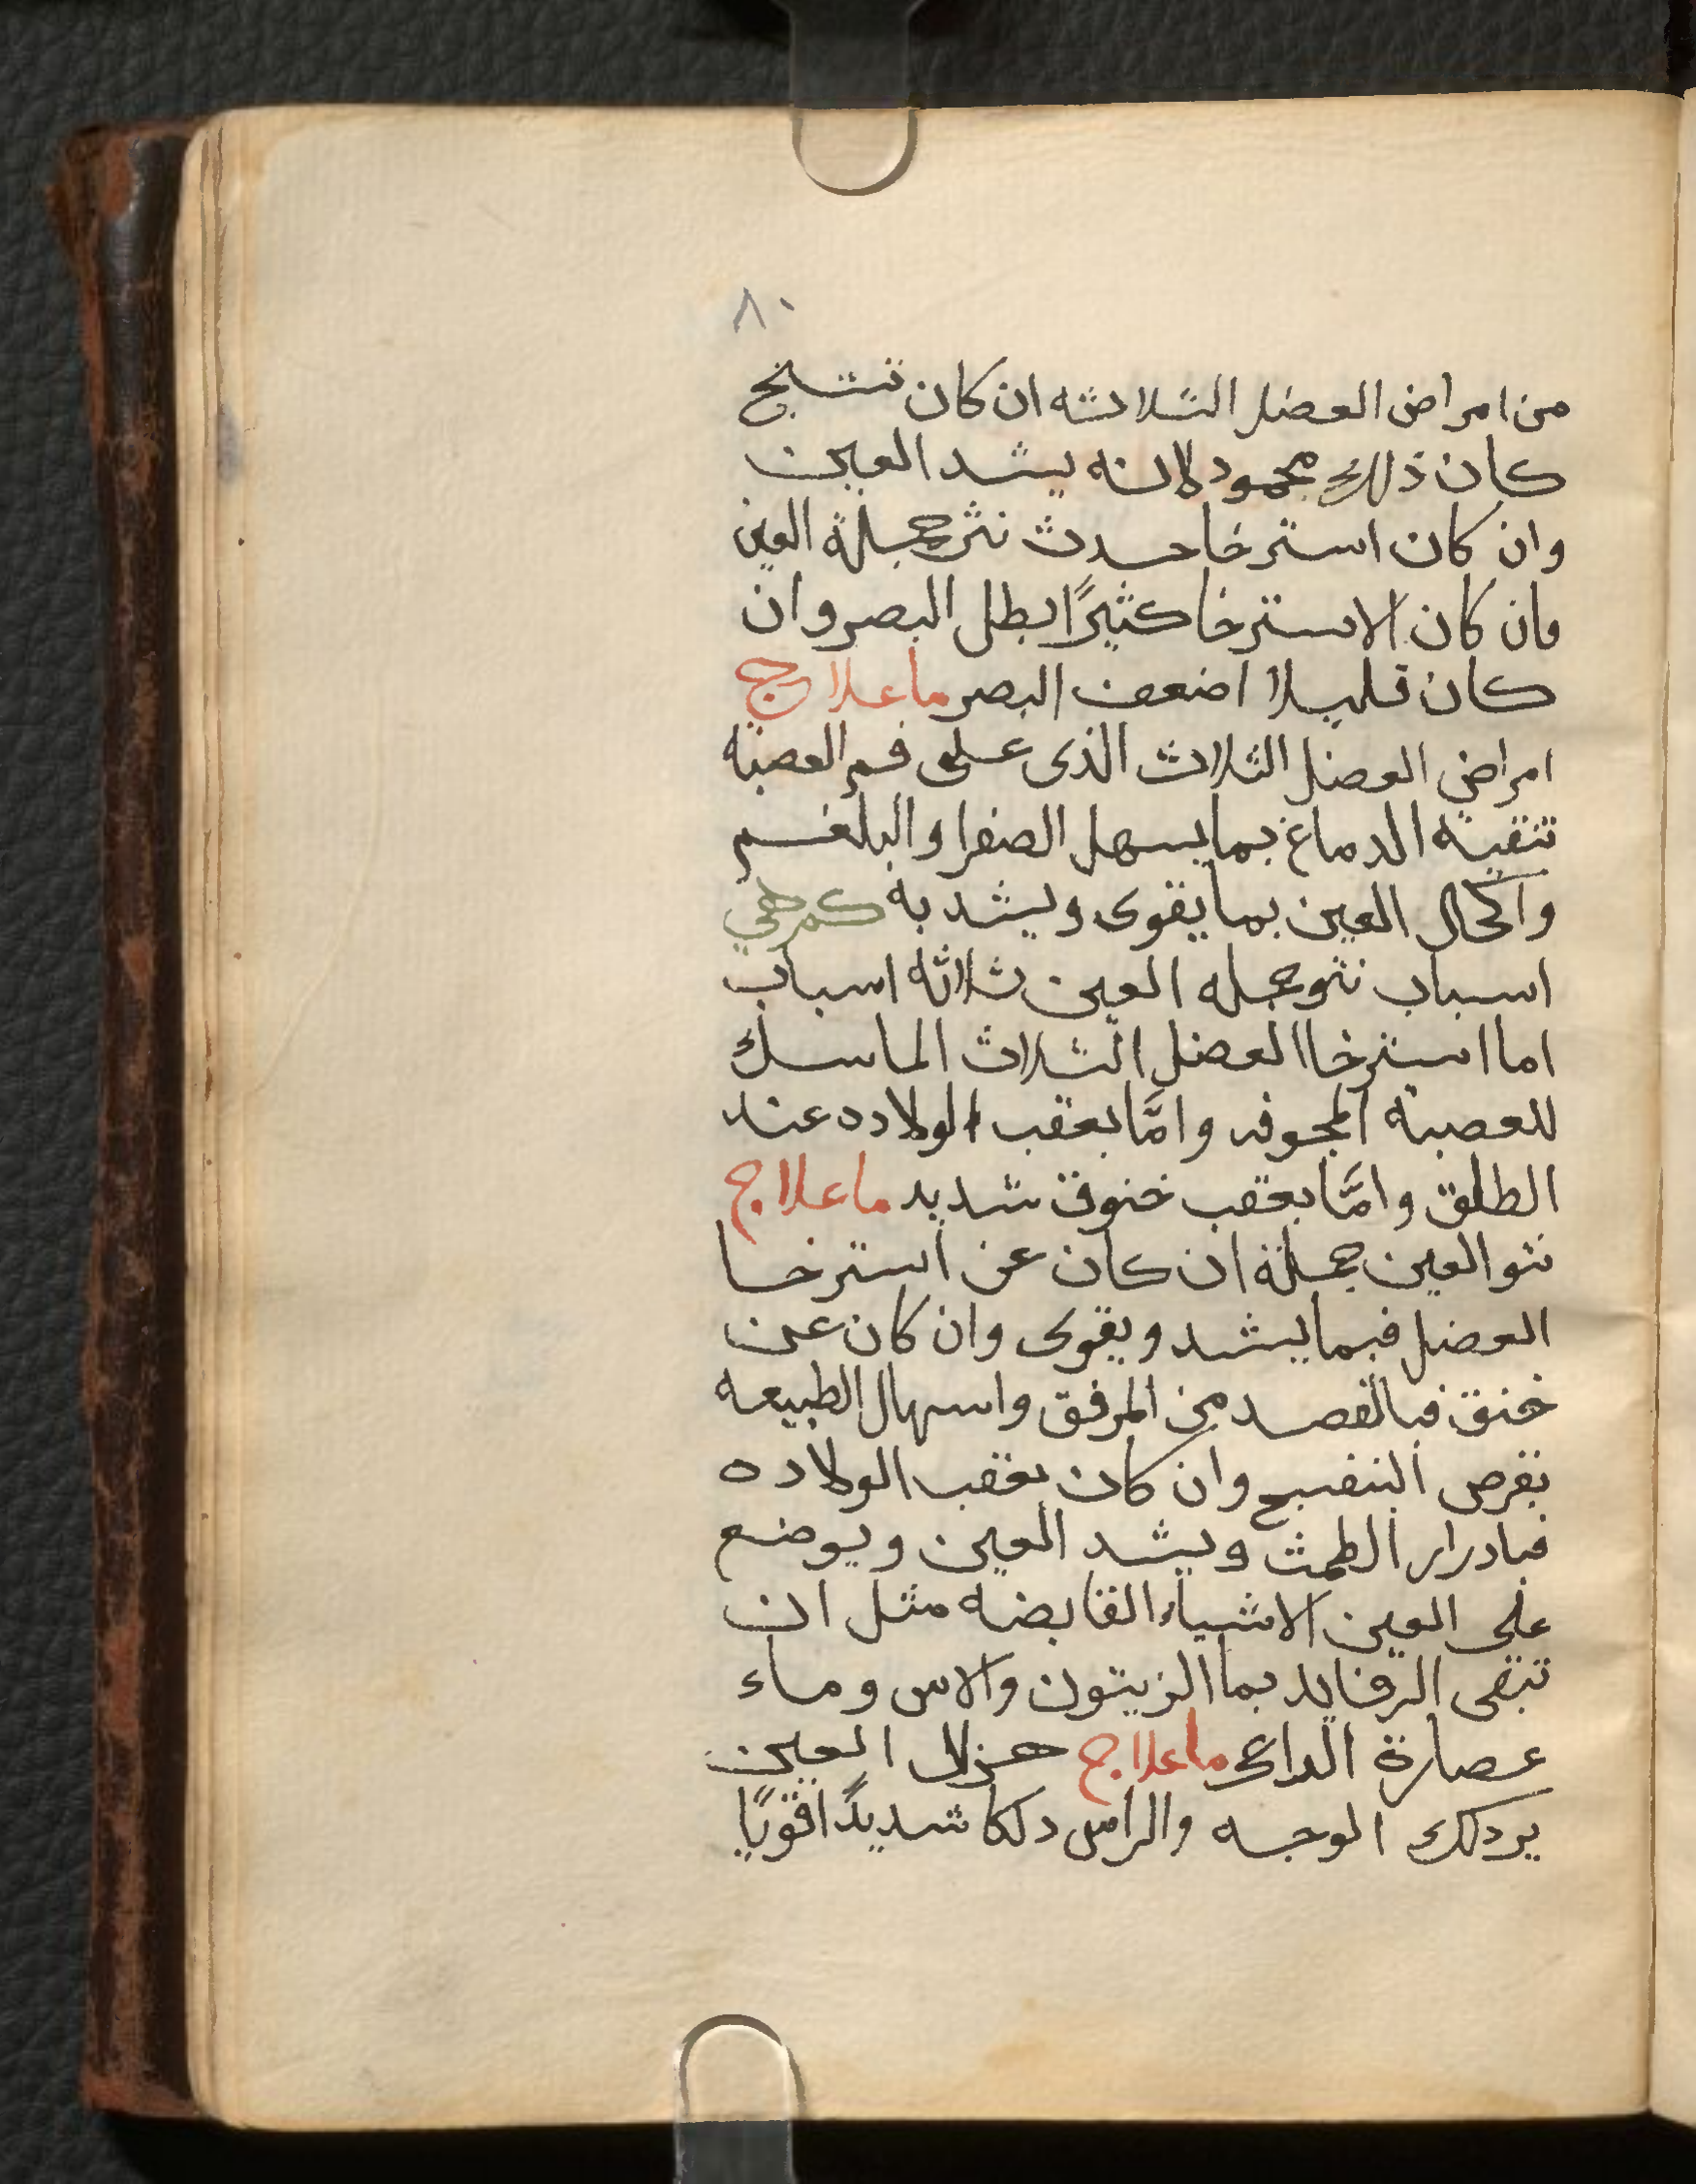 ٨٠
من امراض العضل الثلاثه ان كان تشنج
كان ذلك محمود لانه يشد العين
وان كان استرخا حدث نتو جملة العين
وان كان الاسترخا كثيرًا بطل البصر وان
كان قليلا اضعف البصر ما علاج
امراض العضل الثلاث الذى على فم العصبة
تنقية الدماغ بما يسهل الصفرا والبلغم
واكحال العين بما يقوى ويشد به كم هي
اسباب نتو جمله العين ثلاثة اسباب
اما استرخا العضل الثلاث الماسك
للعصبة المجوفه وامَّا بعقب الولاده عند
الطلق وامَّا بعقب خنوق شديد ما علاج
نتو العين جملة ان كان عن استرخا
العضل فبما يشد ويقوى وان كان عن
خنق فبالفصد من المرفق واسهال الطبيعه
بقرص البنفسج وان كان بعقب الولاده
فبادرار الطمث ويشد العين ويوضع
على العين الاشياء القابضه مثل ان
تبقى الرفايد بما الزيتون والاس وماء
عصارة الراعى ما علاج هزال العين
يردلك الوجه والراس دلكا شديدًا قويًا